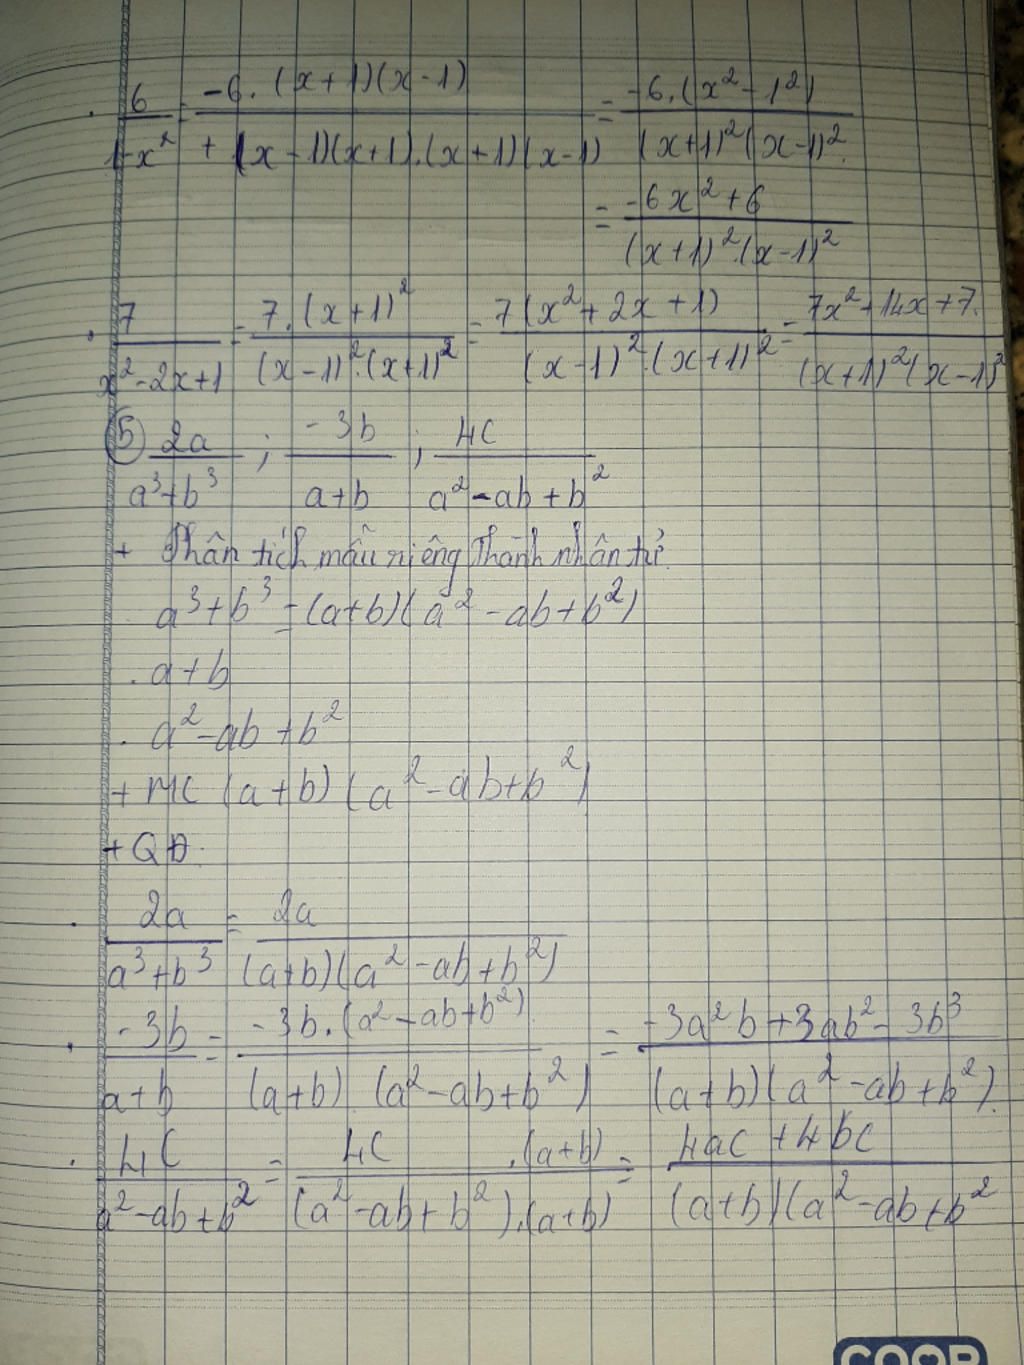 . 6/(1-x²) = -6.(x+1)(x-1)/(+(x-1)(x+1).(x+1)(x-1)) = -6.(x²-1²)/((x+1)²(x-1)².)
= (-6x²+6)/((x+1)².(x-1)²)
. 7/(x²-2x+1) = 7.(x+1)²/((x-1)².(x+1)²) = 7(x²+2x+1)/((x-1)².(x+1)²) = (7x²+14x+7.)/((x+1)²(x-1)²)
⑤ 2a/(a³+b³) ; -3b/(a+b) ; 4c/(a²-ab+b²)
+ Phân tích mẫu riêng thành nhân tử.
. a³+b³ = (a+b)(a²-ab+b²)
. a+b
. a²-ab+b²
+ MC (a+b)(a²-ab+b²)
+ QĐ.
. 2a/(a³+b³) = 2a/((a+b)(a²-ab+b²))
. -3b/(a+b) = -3b.(a²-ab+b²)/((a+b).(a²-ab+b²)) = (-3a²b+3ab²-3b³)/((a+b)(a²-ab+b²).)
. 4c/(a²-ab+b²) = 4c.(a+b)/((a²-ab+b²).(a+b)) = (4ac+4bc)/((a+b)(a²-ab+b²
COOP